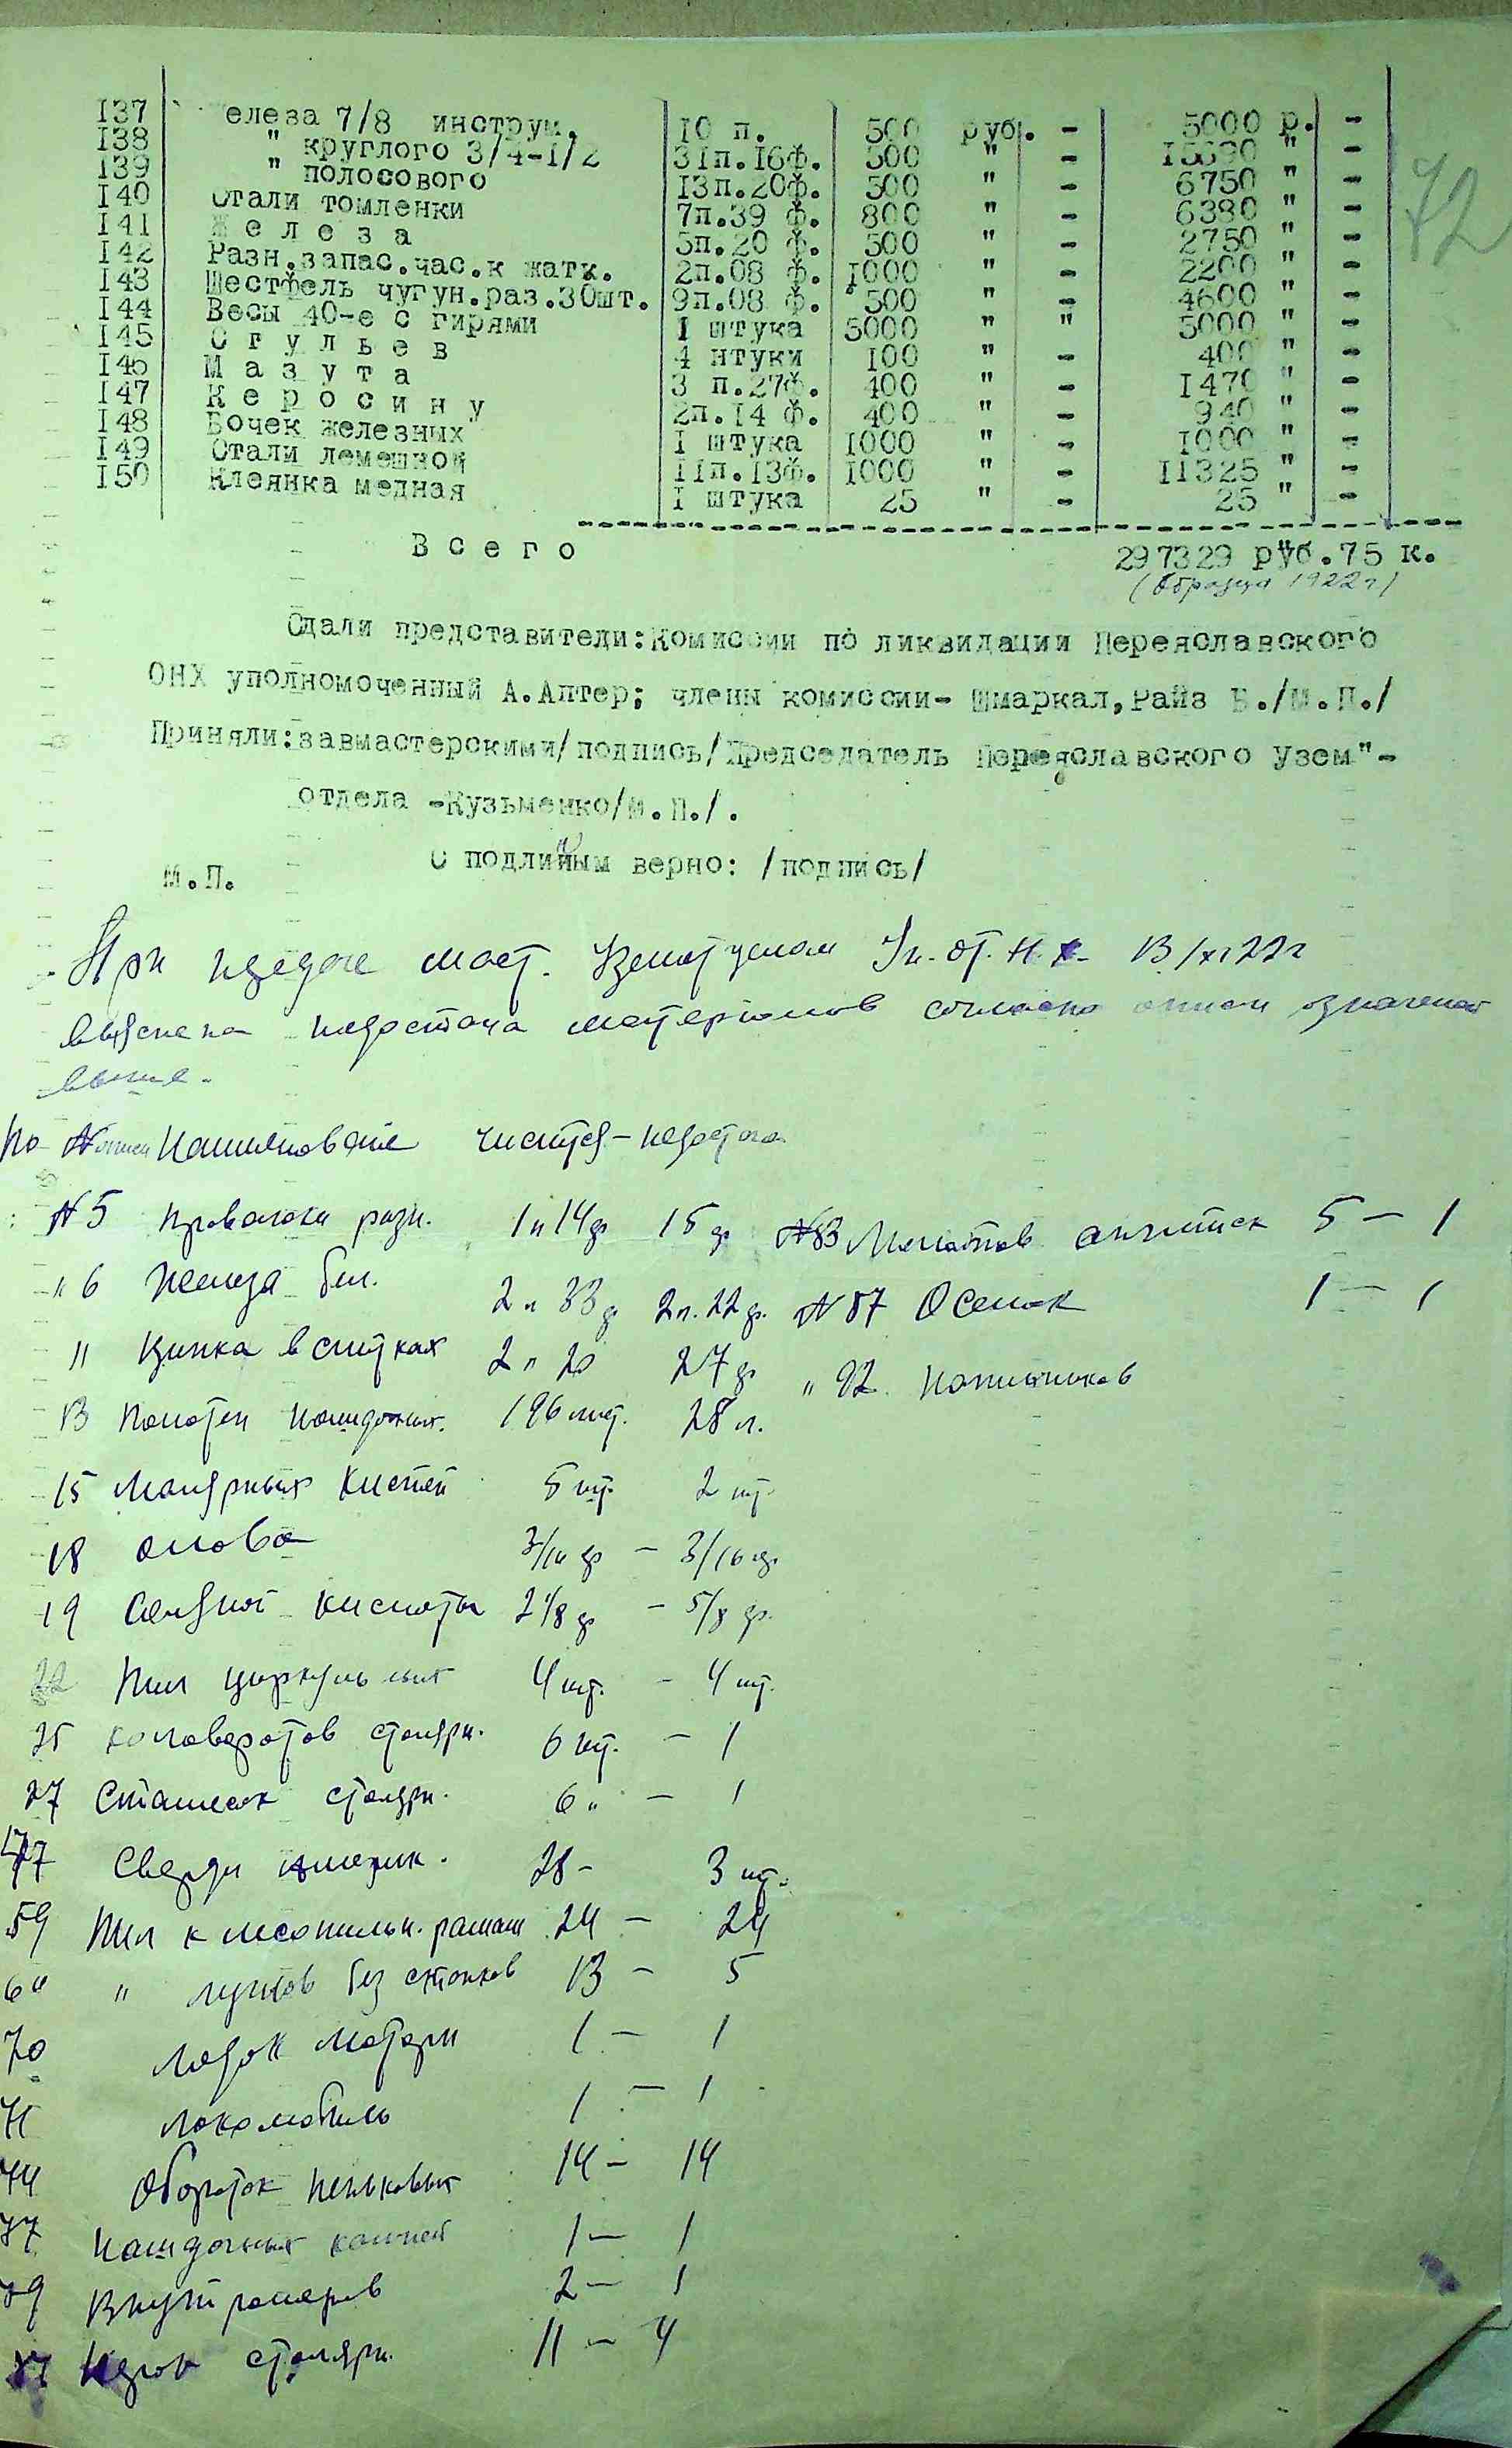 72
137 елеза 7/8 инструм. 10 п. 500 руб. - 5000 р. -
138 " круглого 3/4-1/2 31п.16ф. 500 " - 15690 " -
139 " полосового 13п.20ф. 500 " - 6750 " -
140 Стали томленки 7п.39 ф. 800 " - 6380 " -
141 Железа 5п.20 ф. 500 " - 2750 " -
142 Разн.запас.час.к жатк. 2п.08 ф. 1000 " - 2200 " -
143 Шестфель чугун.раз.30шт. 9п.08 ф. 500 " - 4600 " -
144 Весы 40-е с гирями 1 штука 5000 " " 5000 " -
145 Стульев 4 нтуки 100 " - 400 " -
146 Мазута 3 п.27ф. 400 " - 1470 " -
147 Керосину 2п.14 ф. 400 " - 940 " -
148 Бочек железных 1 штука 1000 " - 1000 " -
149 Стали лемешной 11п.13ф. 1000 " - 11325 " -
150 Клеянка медная 1 штука 25 " - 25 " -
Всего 297329 руб.75 к.
(образца 1922г)
Сдали представители:Комиссии по ликвидации Переяславского
ОНХ уполномоченный А.Аптер; члены комиссии- Шмаркал,Райз Б./М.П./
Приняли:завмастерскими/подпись/Председатель Переяславского Узем"-
отдела -Кузьменко/М.П./.
С подлинным верно: /подпись/
М.П.
При передаче маст. Уземотделом Уп. От. Н.Х. 13/XI 22г
выяснена недостача материалов согласно описи означеной
выше.
По № описи Наименование числится - недостача
№5 Проволоки разн. 1п 14ф 15ф №83 Молотков англитск 5 - 1
" 6 Железа бел. 2п 33ф 2п.22ф. №87 Оселок 1 - 1
11 Цинка в слитках 2п 20 27ф " 92 Напильников
13 Полотен наждачных. 196 лист. 28 л.
15 Малярных кистей 5 шт. 2 шт.
18 Олова 3/16 ф - 3/16 ф.
19 Соляной кислоты 2 1/8 ф - 5/8 ф.
22 Пил циркульных 4 шт. - 4 шт.
25 Коловоротов столярн. 6 шт. - 1
27 столярн. 6 " - 1
47 Сверл 28 - 3 шт.
59 Пил к лесопильн. рамам 24 - 24
60 " лучков без станков 13 - 5
70 1 - 1
71 Локомобиль 1 - 1
74 Обороток пеньковых 14 - 14
77 Наждачных камней 1 - 1
79 Внутромеров 2 - 1
столярн. 11 - 4